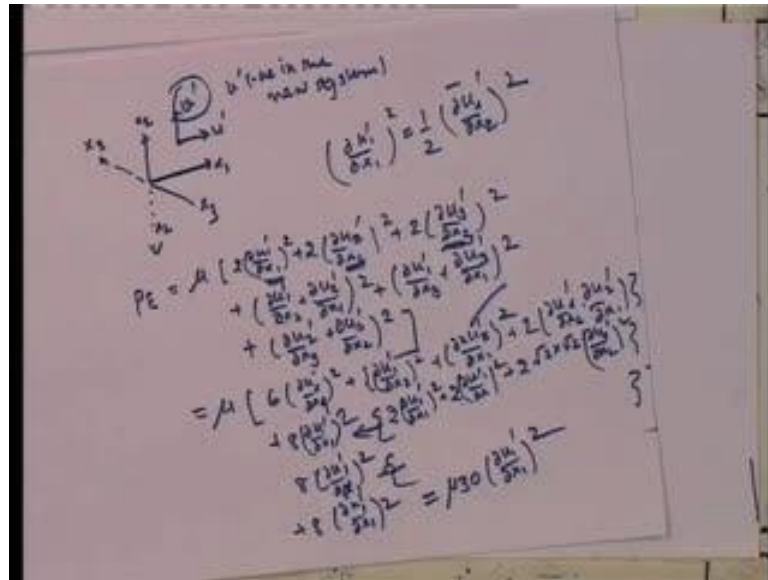 u'
u' (-ve in the
new system)
x₂
u'
x₃
x₁
x₃
x₂
(∂u₁'/∂x₁)² = 1/2 (∂u₁'/∂x₂)²
PE = μ [ 2(∂u₁'/∂x₁)² + 2(∂u₂'/∂x₂)² + 2(∂u₃'/∂x₃)²
+ (∂u₁'/∂x₂ + ∂u₂'/∂x₁)² + (∂u₁'/∂x₃ + ∂u₃'/∂x₁)²
+ (∂u₂'/∂x₃ + ∂u₃'/∂x₂)² ]
= μ [ 6(∂u₁'/∂x₁)² + {(∂u₁'/∂x₂)² + (∂u₂'/∂x₁)² + 2(∂u₁'/∂x₂ ∂u₂'/∂x₁)}
+ 8(∂u₁'/∂x₁)² ← { 2(∂u₁'/∂x₁)² + 2(∂u₁'/∂x₁)² + 2√2×√2(∂u₁'/∂x₂)² }
8(∂u₁'/∂x₁)² {
}
+ 8(∂u₁'/∂x₁)² = μ30(∂u₁'/∂x₁)²